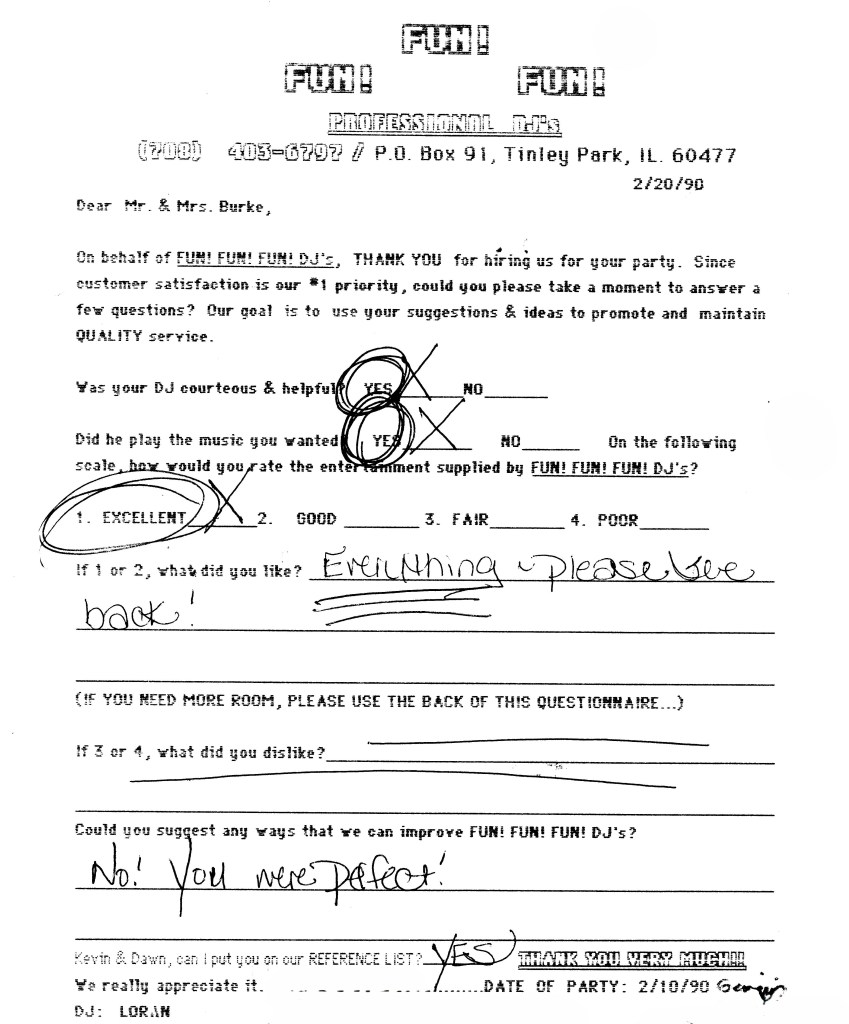 FUN!
FUN! FUN!
PROFESSIONAL DJ's
(708) 403-6797 // P.O. Box 91, Tinley Park, IL. 60477
2/20/90
Dear Mr. & Mrs. Burke,
On behalf of FUN! FUN! FUN! DJ's, THANK YOU for hiring us for your party. Since
customer satisfaction is our #1 priority, could you please take a moment to answer a
few questions? Our goal is to use your suggestions & ideas to promote and maintain
QUALITY service.
Was your DJ courteous & helpful? YES X NO
Did he play the music you wanted YES X NO On the following
scale, how would you rate the entertainment supplied by FUN! FUN! FUN! DJ's?
1. EXCELLENT X 2. GOOD 3. FAIR 4. POOR
If 1 or 2, what did you like? Everything - please see
back!
(IF YOU NEED MORE ROOM, PLEASE USE THE BACK OF THIS QUESTIONNAIRE...)
If 3 or 4, what did you dislike?
Could you suggest any ways that we can improve FUN! FUN! FUN! DJ's?
No! You were perfect!
Kevin & Dawn, can I put you on our REFERENCE LIST? YES THANK YOU VERY MUCH!!!
We really appreciate it. DATE OF PARTY: 2/10/90
DJ: LORAN